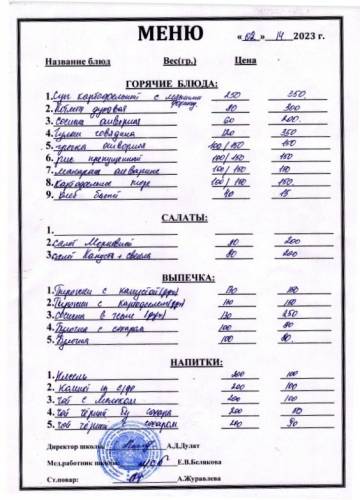 МЕНЮ «02» 14 2023 г.
Название блюд Вес(гр.) Цена
ГОРЯЧИЕ БЛЮДА:
1. Суп картофельный с 250 350
2. Котлета 80 300
3. Сосиска отварная 60 200
4. Гуляш говядина 120 350
5. Гречка отварная 100/150 150
6. Рис припущенный 100/150 150
7. Макароны отварные 100/150 150
8. Картофельное пюре 100/150 150
9. Хлеб белый 15
САЛАТЫ:
1.
2. салат 80 200
3. салат Капуста + свекла 80 200
ВЫПЕЧКА:
1. Пирожки с капустой
2. Пирожки с картофелем
3. Сосиска в тесте 250
4. Булочка с сахаром 100 80
5. Булочка 100 80
НАПИТКИ:
1. Кисель 200 100
2. Компот из с/фр 200 100
3. Чай с молоком 200 100
4. Чай чёрный б/ сахара 200 80
5. Чай чёрный с сахаром 200 90
Директор школы: А.Д.Дулат
Мед.работник школы: Е.В.Белякова
Ст.повар: А.Журавлева